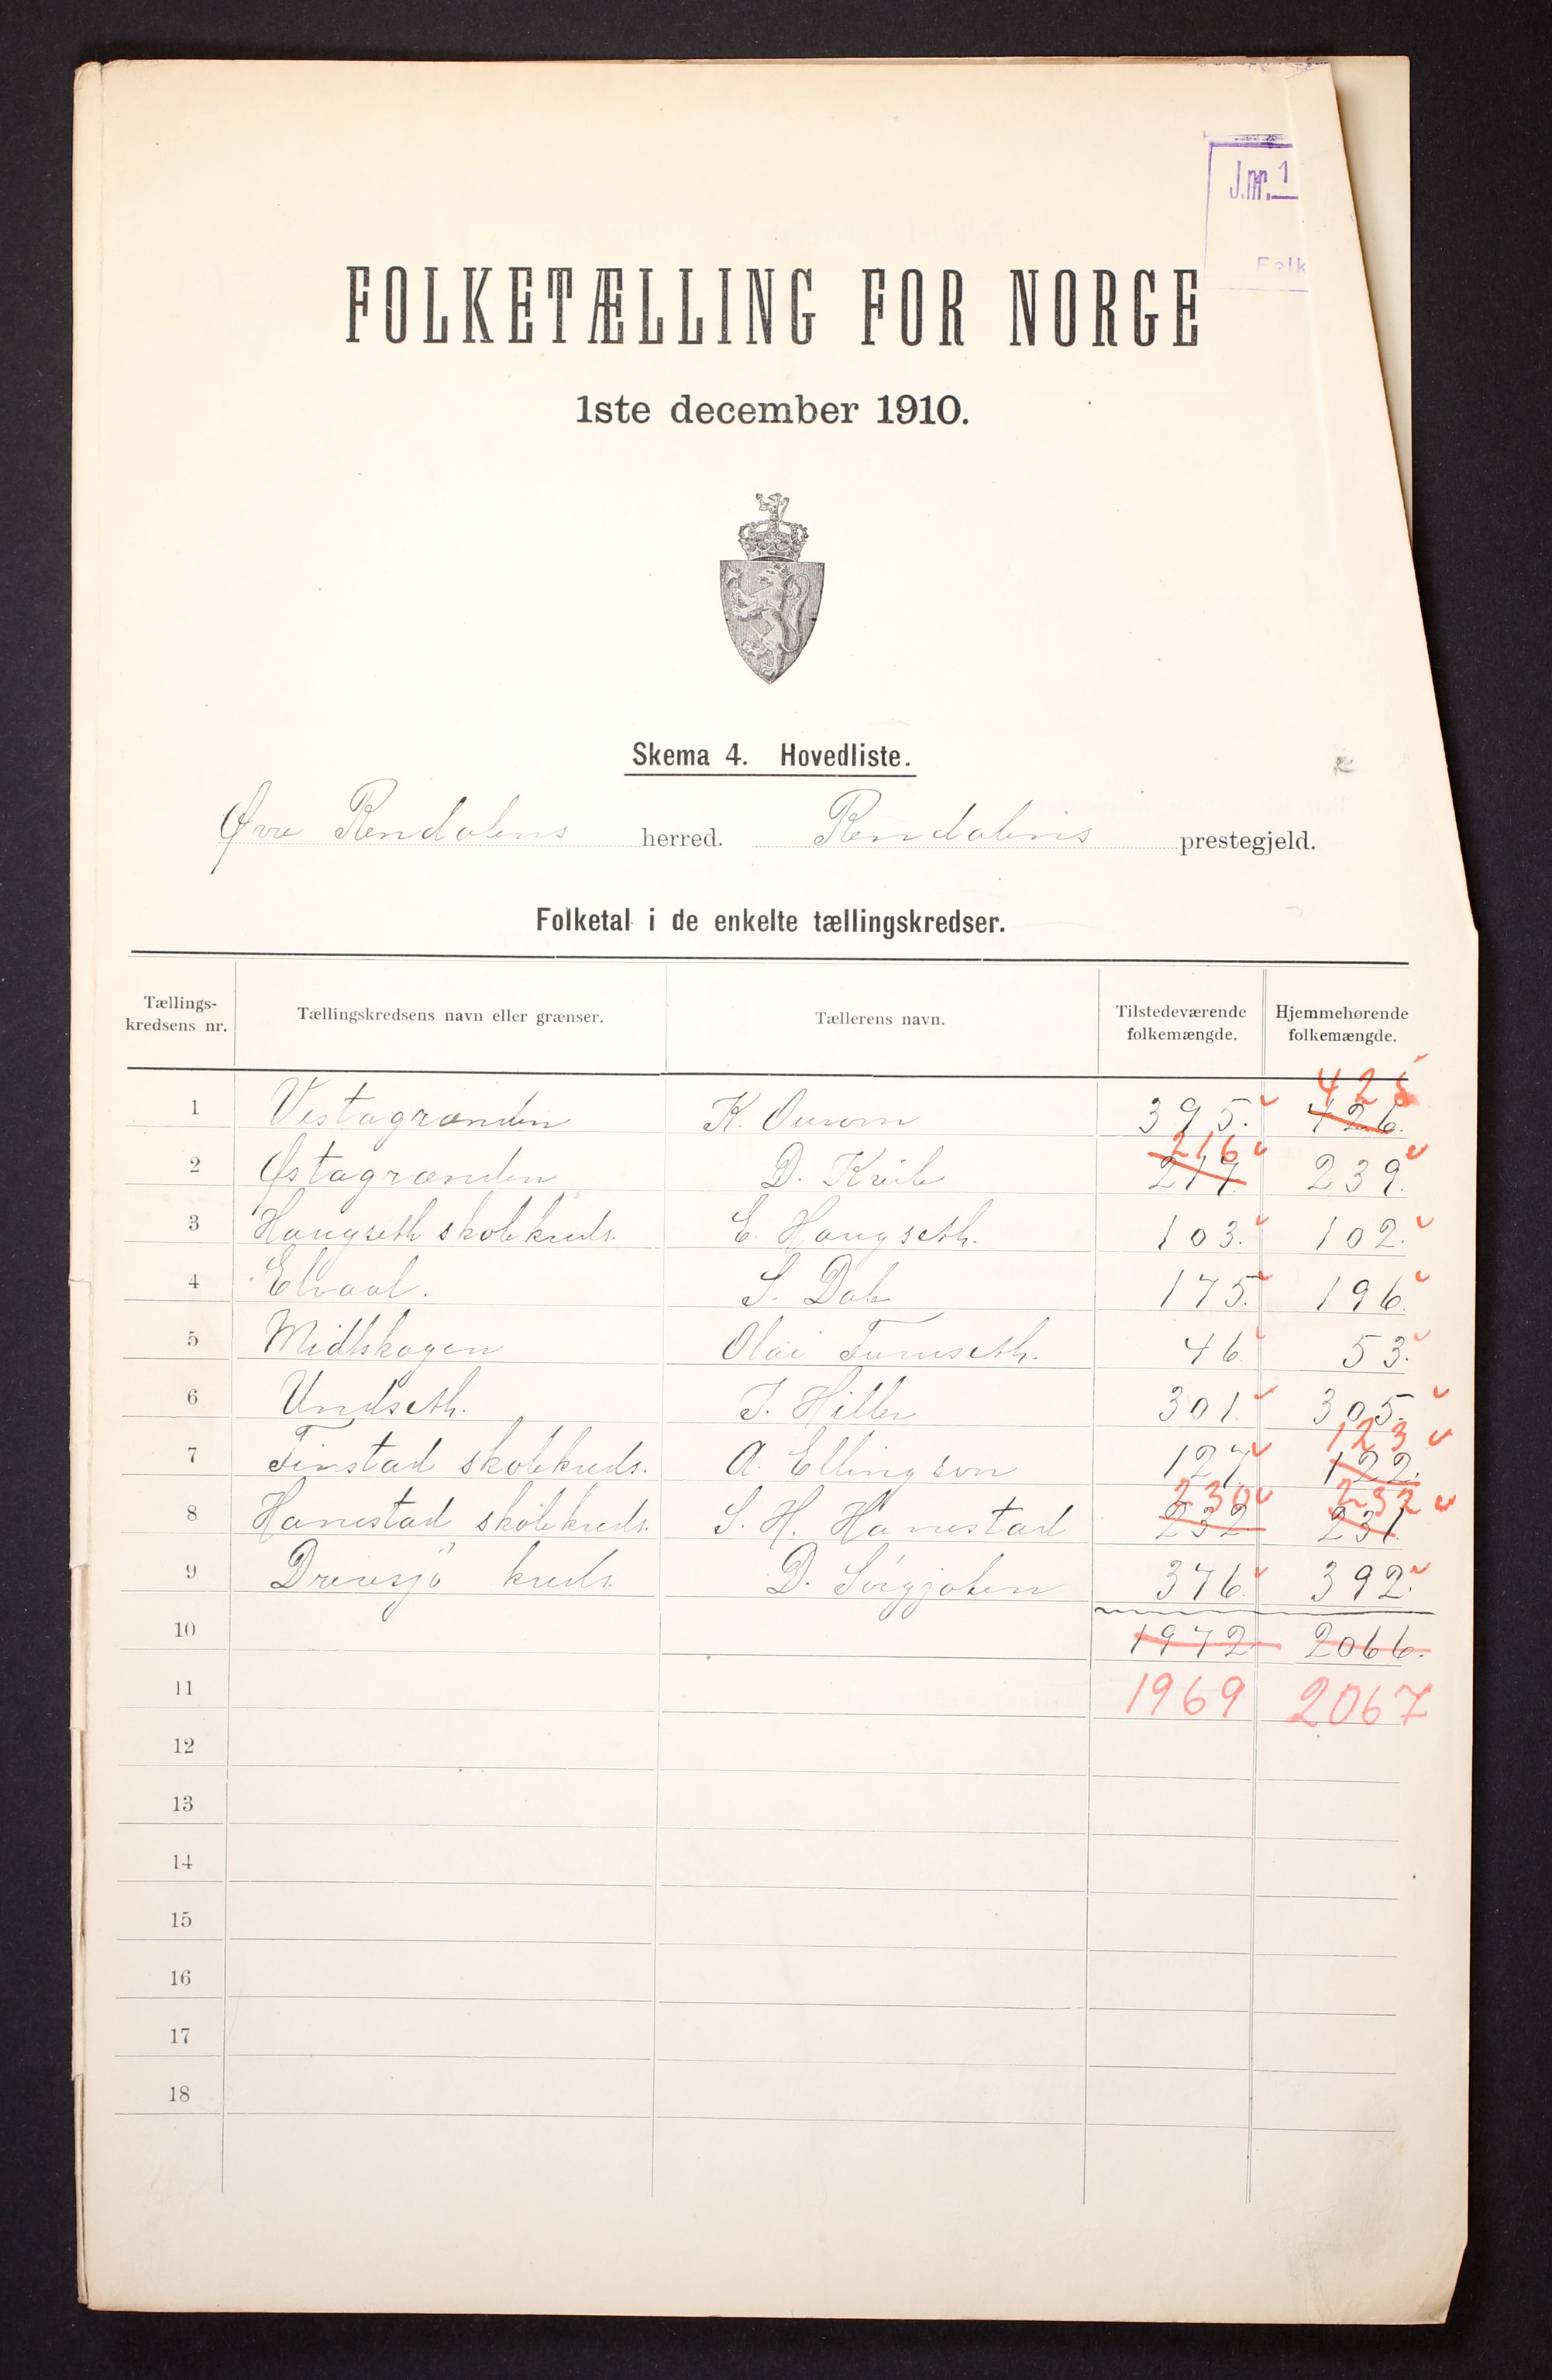 J.nr. 1
Folk
FOLKETÆLLING FOR NORGE
1ste december 1910.
Skema 4. Hovedliste.
Øvre Rendalens herred. Rendalens prestegjeld.
Folketal i de enkelte tællingskredser.
Tællings-kredsens nr. Tællingskredsens navn eller grænser. Tællerens navn. Tilstedeværende folkemængde. Hjemmehørende folkemængde.
425
1 Vestagrænden K. 395. 426.
216
2 Østagrænden D. 217. 239.
3 Haugseth skolekreds. E. Haugseth. 103. 102.
4 Elvaal. S. Dale 175. 196.
5 Midtskogen Olai Furuseth. 46. 53.
6 Undseth. J. Hiller 301. 305.
123
7 Finstad skolekreds. A. Ellingson 127. 122.
230 232
8 Hanestad skolekreds. S. H. Hanestad 232 231.
9 Drevsjö kreds. D. 376. 392.
10 1972 2066.
11 1969 2067
12
13
14
15
16
17
18